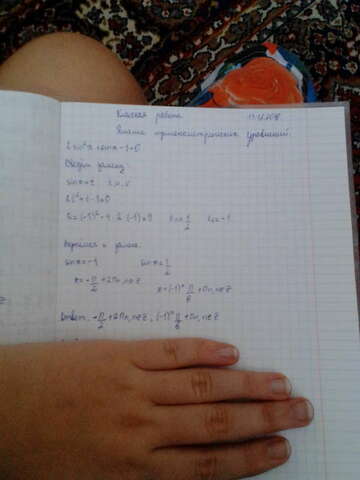 Классная работа
Решение тригонометрических уравнений.
2 sin²x + sinx - 1 = 0
Введём замену:
sinx = t
2t² + t - 1 = 0
t₁ = 1/2 t₂ = -1
Вернёмся к замене.
sinx = -1 sinx = 1/2
x = -π/2 + 2πn, n∈Z
x = (-1)ⁿ π/6 + πn, n∈Z
Ответ: -π/2 + 2πn, n∈Z; (-1)ⁿ π/6 + πn, n∈Z